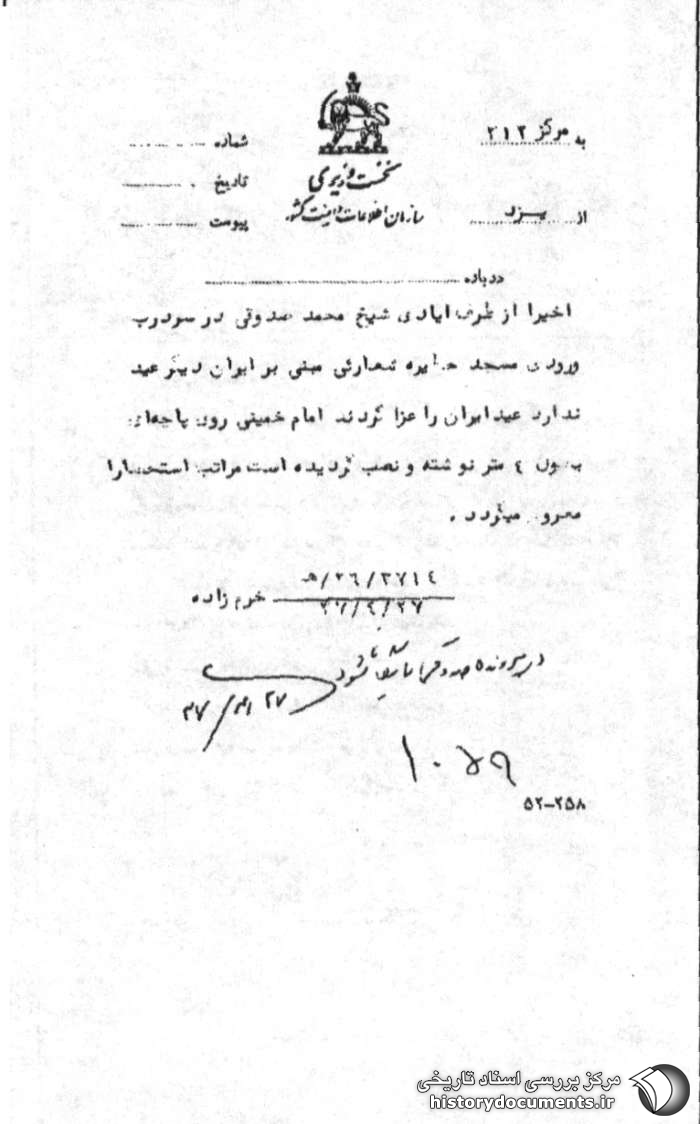 به مرکز ۲۱۲
شماره
نخست وزیری
تاریخ
سازمان اطلاعات و امنیت کشور
از یزد
پیوست
درباره
اخیرا از طرف ایادی شیخ محمد صدوقی در سردرب
ورودی مسجد حظیره شعارئی مبنی بر ایران دیگر عید
ندارد عید ایران را عزا کردند امام خمینی روی پاچه‌ای
بطول ٤ متر نوشته و نصب گردیده است مراتب استحضارا
معروض میگردد .
۲۷۱٤/۲٦/هـ
خرم زاده
در پرونده شود
۲۷
۳۷
۱۰۵۹
۵۲-۲۵۸
مرکز بررسی اسناد تاریخی
historydocuments.ir